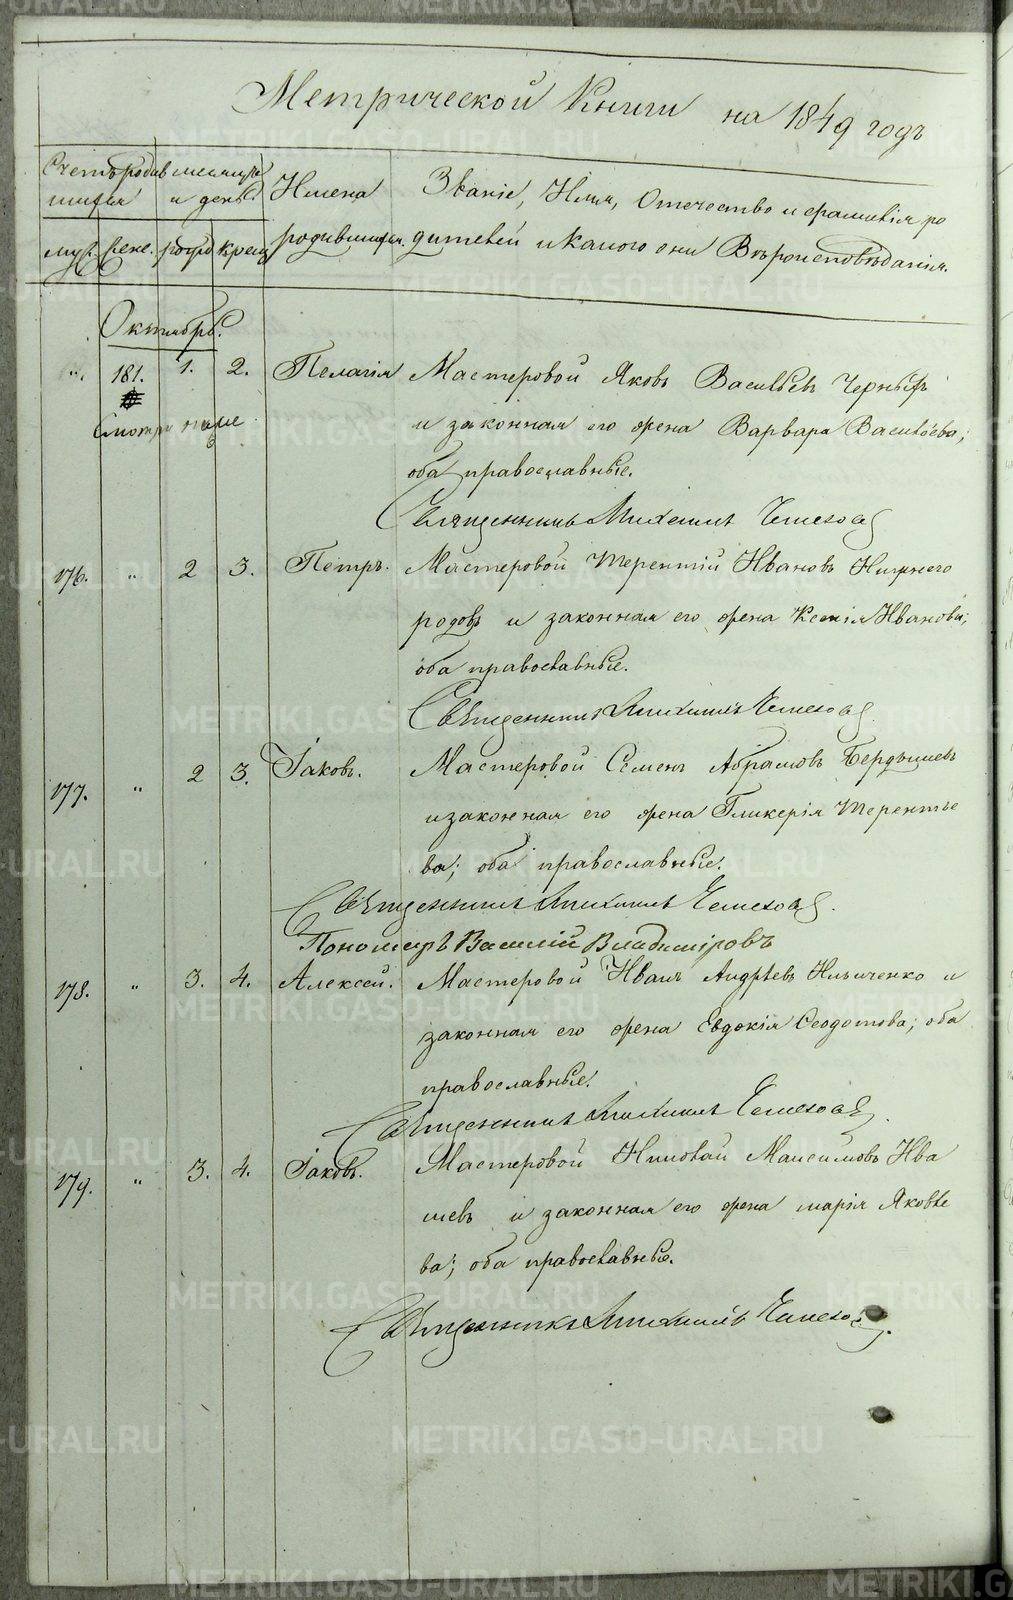 Метрической Книги на 1849 годъ
Счетъ родив
шихся
месяцъ
и день.
Имена
родившихся.
Званіе, Имя, Отечество и фамилія ро
дителей и какого они Вѣроисповѣданія.
муж. жене. рожд крещ
Октябрь.
„ 181. 1. 2. Пелагія Мастеровой Яковъ Васильевъ Черныхъ
смотри ниже
и законная его жена Варвара Васильева;
оба православные.
Священникъ Михаилъ
176. „ 2 3. Петръ. Мастеровой Терентій Ивановъ Нижнего
родовъ и законная его жена Ксенія Иванова;
оба православные.
Священникъ Михаилъ
177. „ 2 3. Іаковъ. Мастеровой Семенъ Абрамовъ Бердышевъ
и законная его жена Гликерія Терентье
ва; оба православные.
Священникъ Михаилъ
Пономарь Василій Владиміровъ
178. „ 3. 4. Алексей. Мастеровой Иванъ Андрѣевъ Ильиченко и
законная его жена Евдокія Ѳеодотова; оба
православные.
Священникъ Михаилъ
179. „ 3. 4. Іаковъ. Мастеровой Николай Максимовъ Ива
шевъ и законная его жена марія Яковле
ва; оба православные.
Священникъ Михаилъ
METRIKI.GASO-URAL.RU